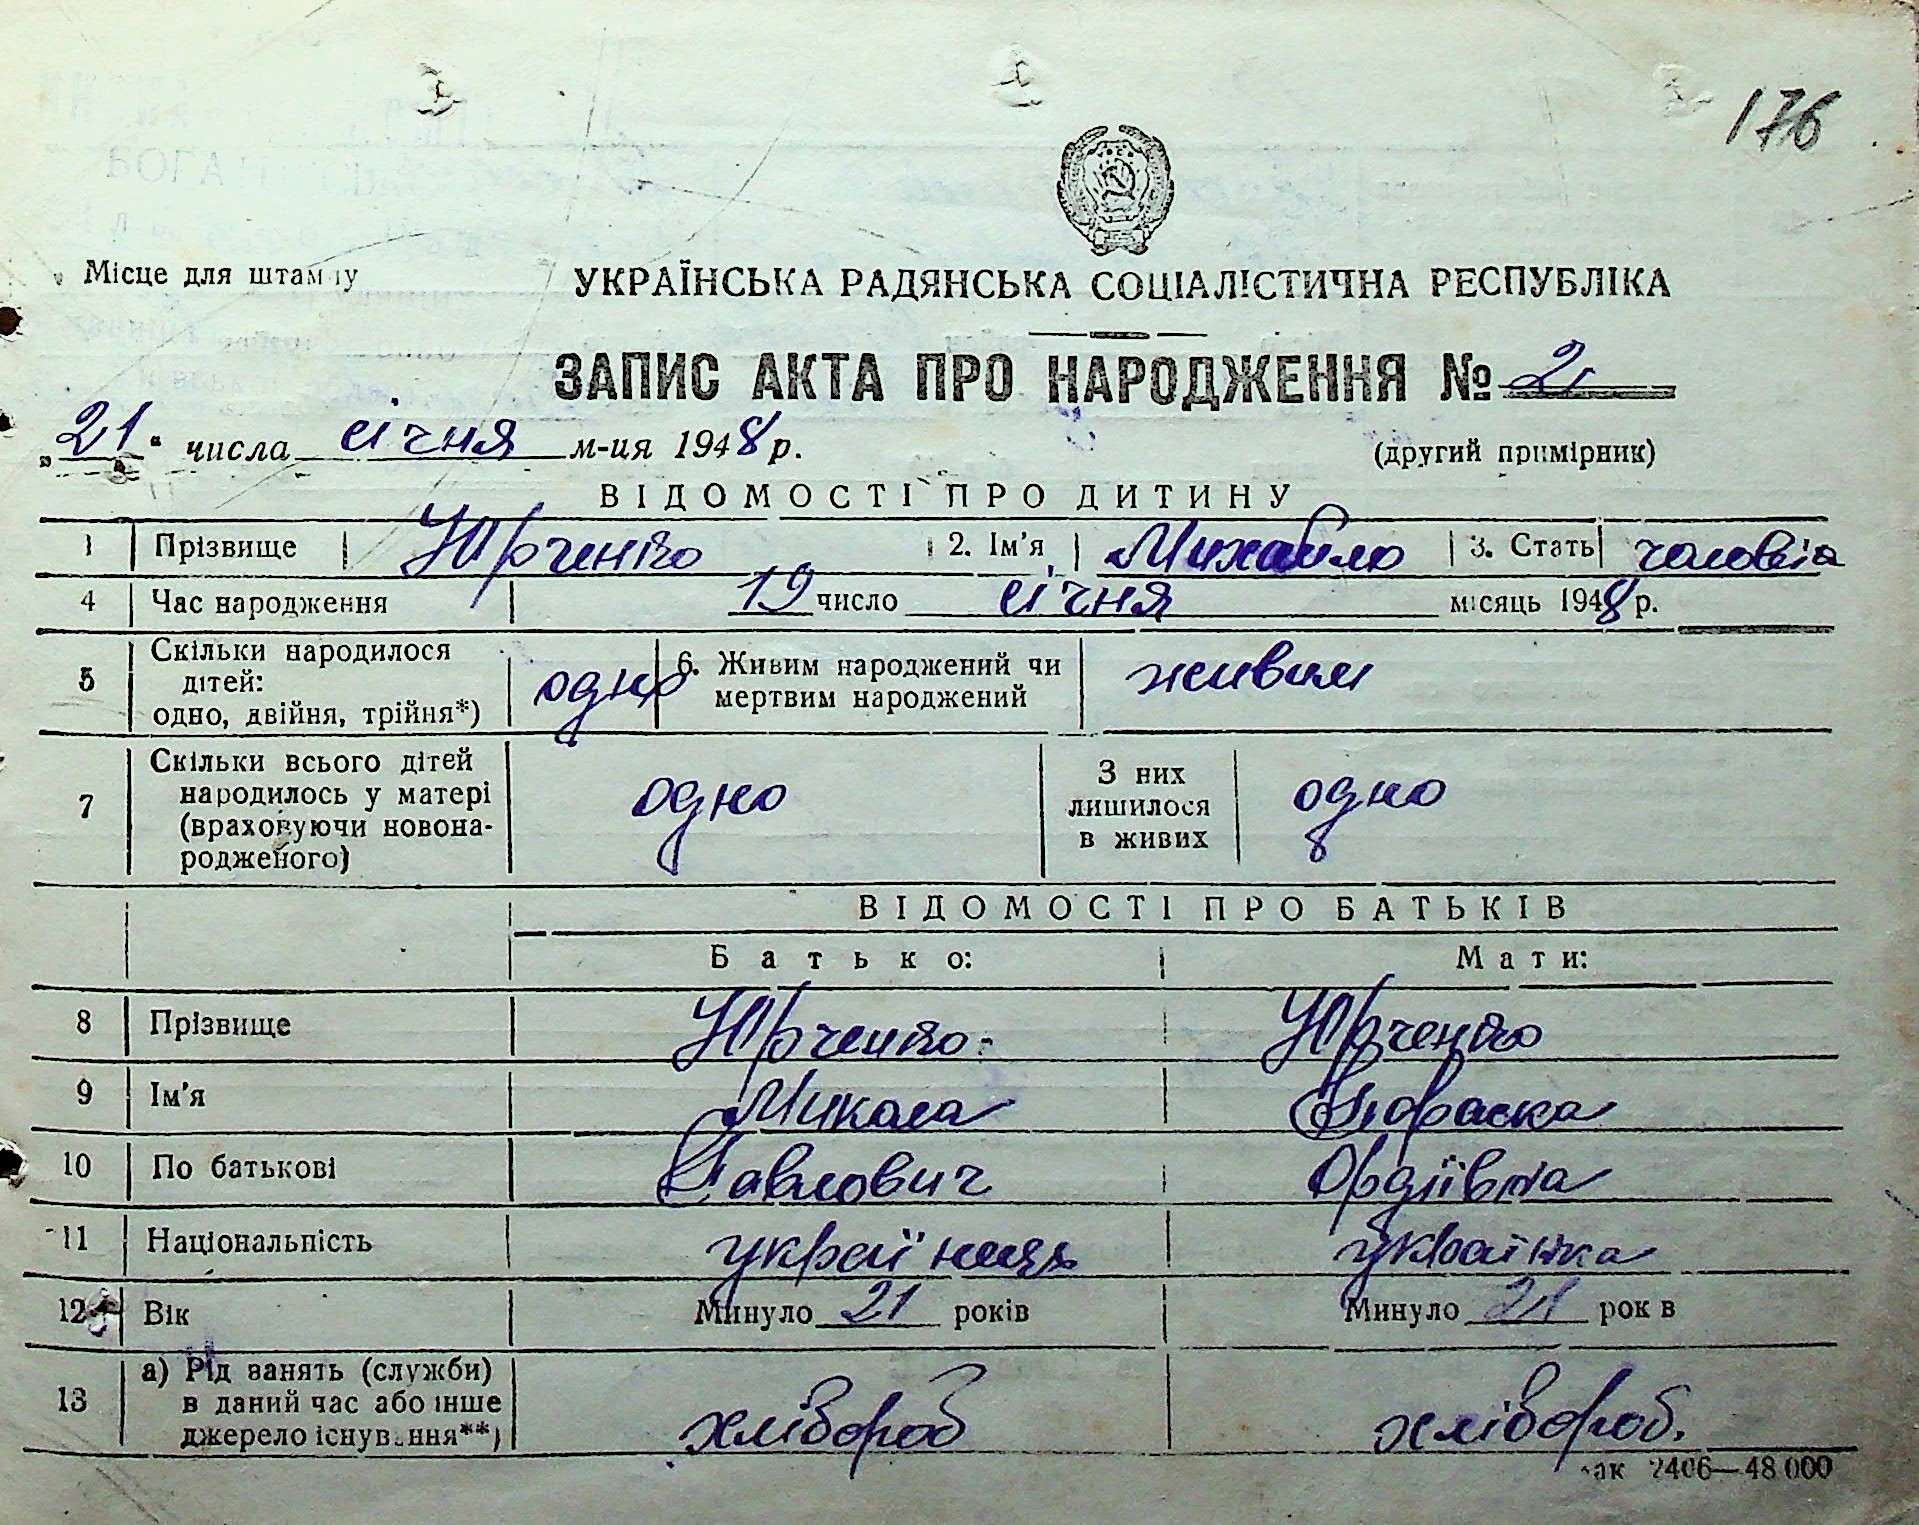 176
Місце для штампу
УКРАЇНСЬКА РАДЯНСЬКА СОЦІАЛІСТИЧНА РЕСПУБЛІКА
ЗАПИС АКТА ПРО НАРОДЖЕННЯ № 2
„21“ числа січня м-ця 1948 р.
(другий примірник)
ВІДОМОСТІ ПРО ДИТИНУ
1 Прізвище Юрченко 2. Ім'я Михайло 3. Стать чоловіча
4 Час народження 19 число січня місяць 1948 р.
5 Скільки народилося дітей: одно, двійня, трійня*) одно 6. Живим народжений чи мертвим народжений живим
7 Скільки всього дітей народилось у матері (враховуючи новонародженого) одно З них лишилося в живих одно
ВІДОМОСТІ ПРО БАТЬКІВ
Батько: Мати:
8 Прізвище Юрченко Юрченко
9 Ім'я Микола Параска
10 По батькові Павлович Ордіївна
11 Національність українець українка
12 Вік Минуло 21 років Минуло 21 рок в
13 а) Рід занять (служби) в даний час або інше джерело існування**) хлібороб хлібороб.
зак 2406—48 000